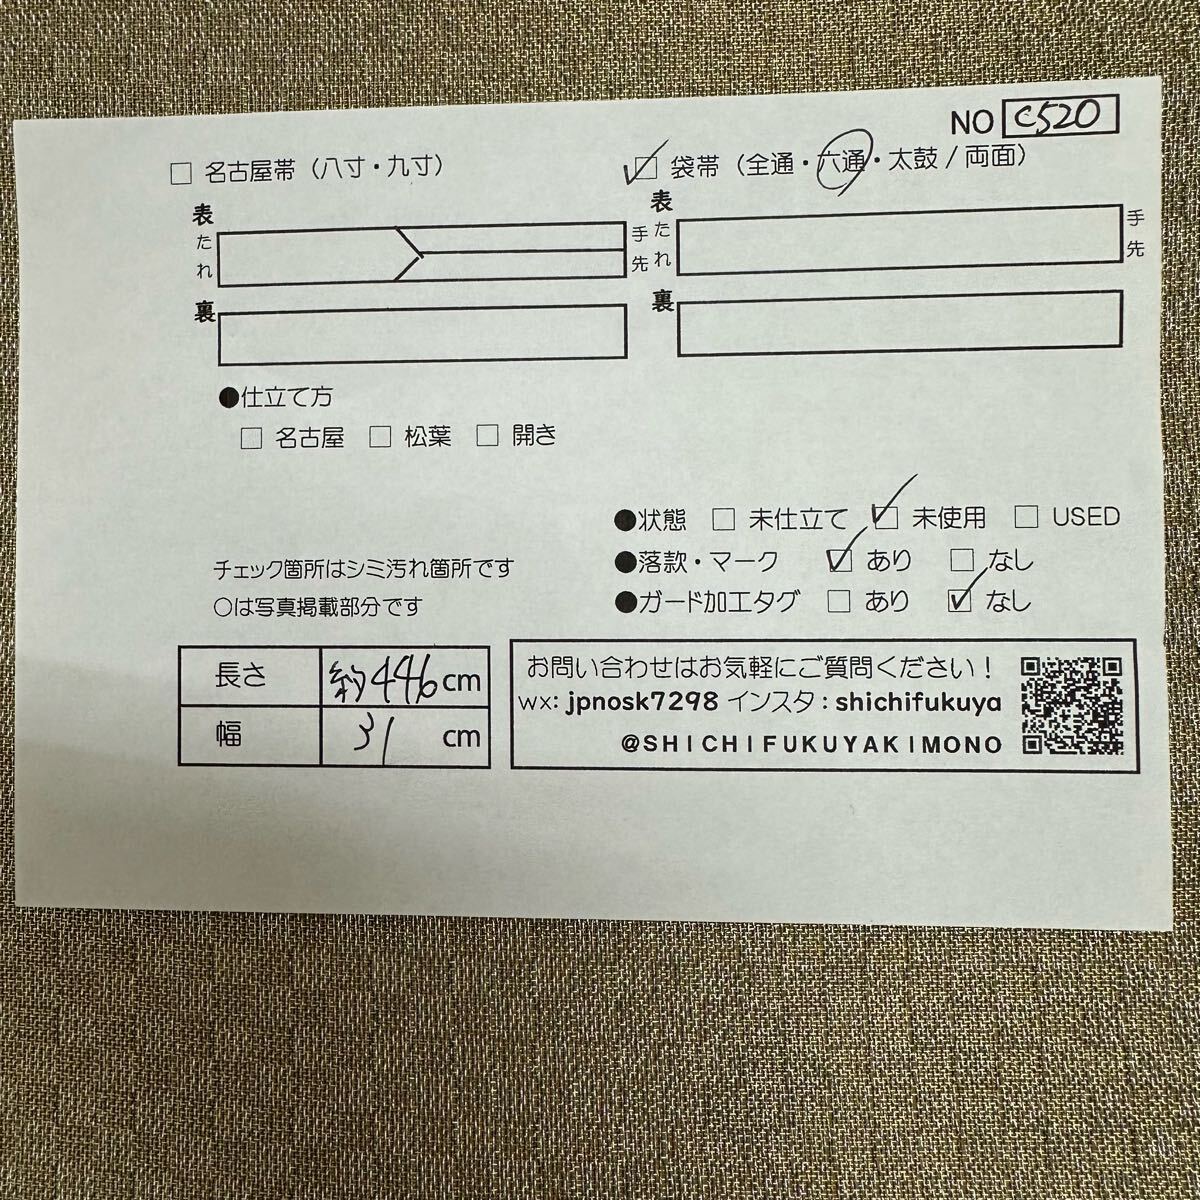 NO C520
□ 名古屋帯（八寸・九寸）
☑ 袋帯（全通・六通・太鼓/両面）
表
たれ
手先
裏
表
たれ
手先
裏
●仕立て方
□ 名古屋 □ 松葉 □ 開き
●状態 □ 未仕立て ☑ 未使用 □ USED
●落款・マーク ☑ あり □ なし
●ガード加工タグ □ あり ☑ なし
チェック箇所はシミ汚れ箇所です
○は写真掲載部分です
長さ 約446cm
幅 31 cm
お問い合わせはお気軽にご質問ください！
wx: jpnosk7298 インスタ：shichifukuya
@SHICHIFUKUYAKIMONO